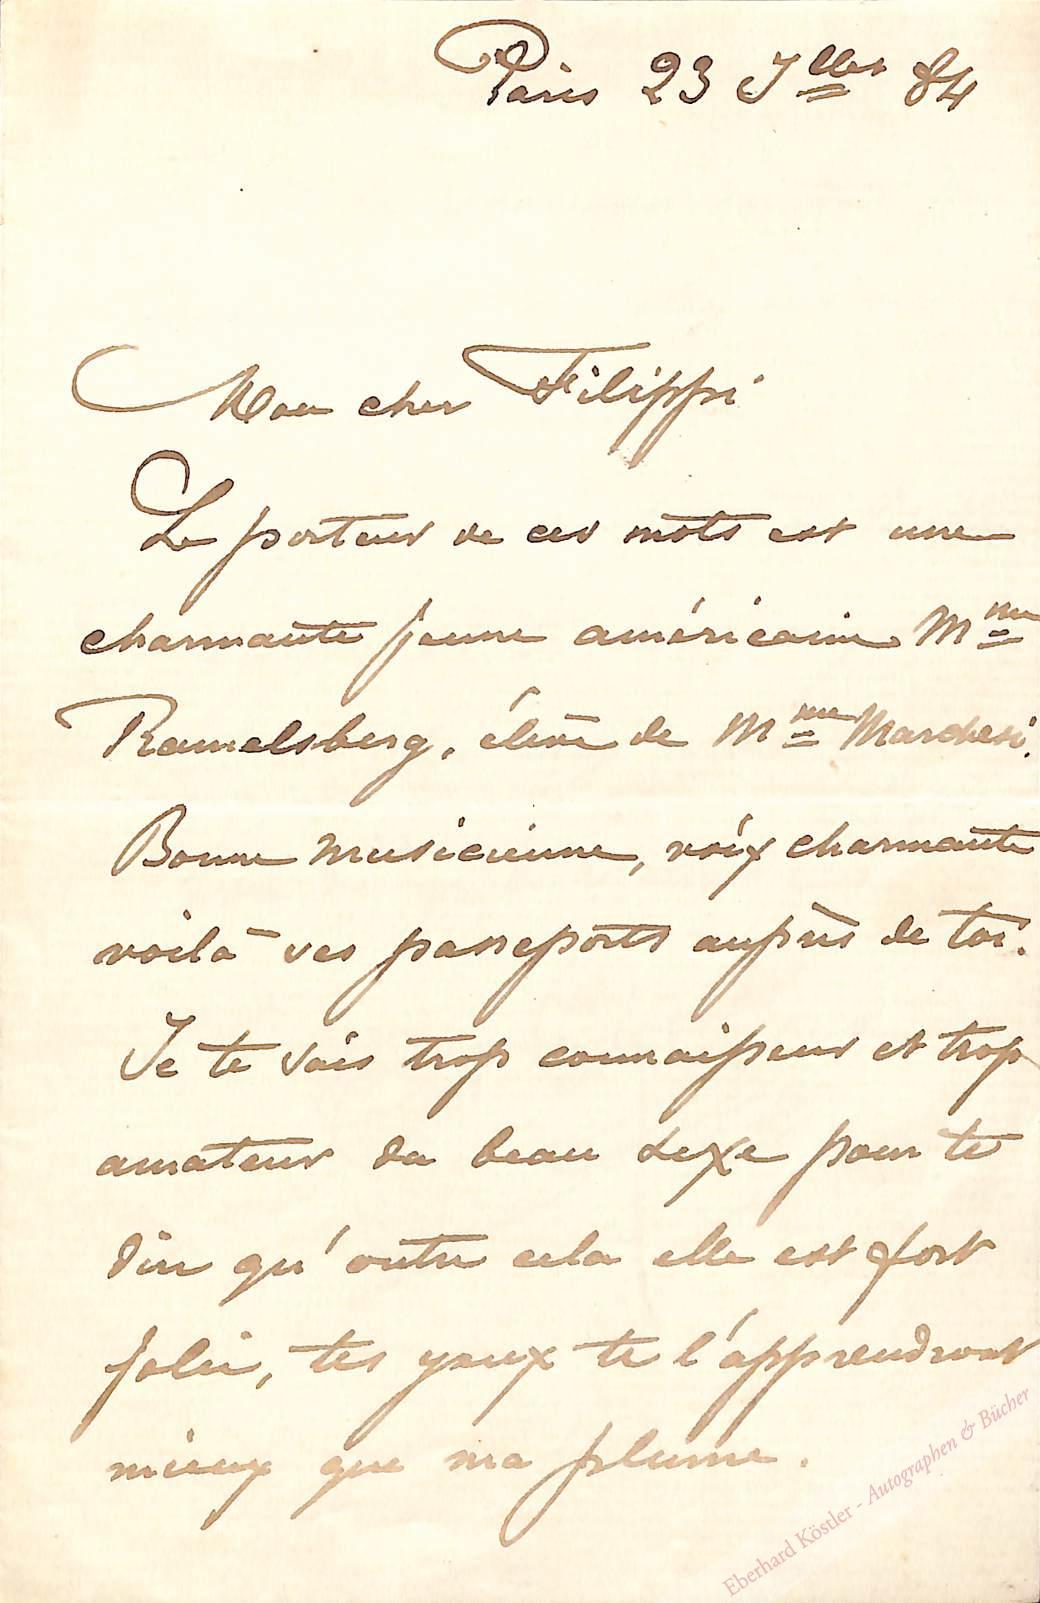 Paris 23 Jllet 84
Mon cher Filippi
Le porteur de ces mots est une
charmante jeune américaine Mme
Ramelsberg, élève de Mme Marchesi.
Bonne musicienne, voix charmante
voilà ses passeports auprès de toi.
Je te sais trop connaisseur et trop
amateur du beau sexe pour te
dire qu'outre cela elle est fort
jolie, tes yeux te l'apprendront
mieux que ma plume.
Eberhard Köstler - Autographen & Bücher